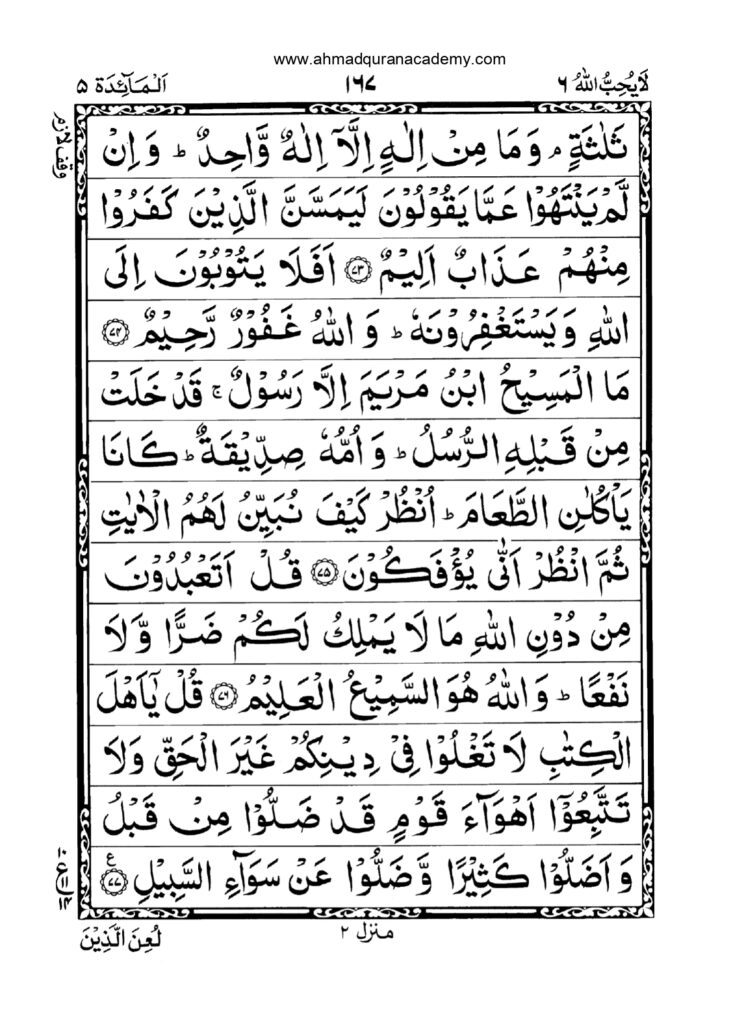 www.ahmadquranacademy.com
لَا يُحِبُّ اللهُ ٦ ١٦٧ اَلْمَآئِدَة ٥
وقف لازم
ثَلٰثَةٍ ۘ وَمَا مِنْ اِلٰهٍ اِلَّاۤ اِلٰهٌ وَّاحِدٌ ؕ وَاِنْ
لَّمْ يَنْتَهُوْا عَمَّا يَقُوْلُوْنَ لَيَمَسَّنَّ الَّذِيْنَ كَفَرُوْا
مِنْهُمْ عَذَابٌ اَلِيْمٌ ﴿٧٣﴾ اَفَلَا يَتُوْبُوْنَ اِلَى
اللهِ وَيَسْتَغْفِرُوْنَهٗ ؕ وَاللهُ غَفُوْرٌ رَّحِيْمٌ ﴿٧٤﴾
مَا الْمَسِيْحُ ابْنُ مَرْيَمَ اِلَّا رَسُوْلٌ ۚ قَدْ خَلَتْ
مِنْ قَبْلِهِ الرُّسُلُ ؕ وَاُمُّهٗ صِدِّيْقَةٌ ؕ كَانَا
يَاْكُلٰنِ الطَّعَامَ ؕ اُنْظُرْ كَيْفَ نُبَيِّنُ لَهُمُ الْاٰيٰتِ
ثُمَّ انْظُرْ اَنّٰى يُؤْفَكُوْنَ ﴿٧٥﴾ قُلْ اَتَعْبُدُوْنَ
مِنْ دُوْنِ اللهِ مَا لَا يَمْلِكُ لَكُمْ ضَرًّا وَّلَا
نَفْعًا ؕ وَاللهُ هُوَ السَّمِيْعُ الْعَلِيْمُ ﴿٧٦﴾ قُلْ يٰۤاَهْلَ
الْكِتٰبِ لَا تَغْلُوْا فِيْ دِيْنِكُمْ غَيْرَ الْحَقِّ وَلَا
تَتَّبِعُوْۤا اَهْوَآءَ قَوْمٍ قَدْ ضَلُّوْا مِنْ قَبْلُ
وَاَضَلُّوْا كَثِيْرًا وَّضَلُّوْا عَنْ سَوَآءِ السَّبِيْلِ ﴿٧٧﴾ ع
١٠
ع ١١
١٤
منزل ٢
لُعِنَ الَّذِيْنَ